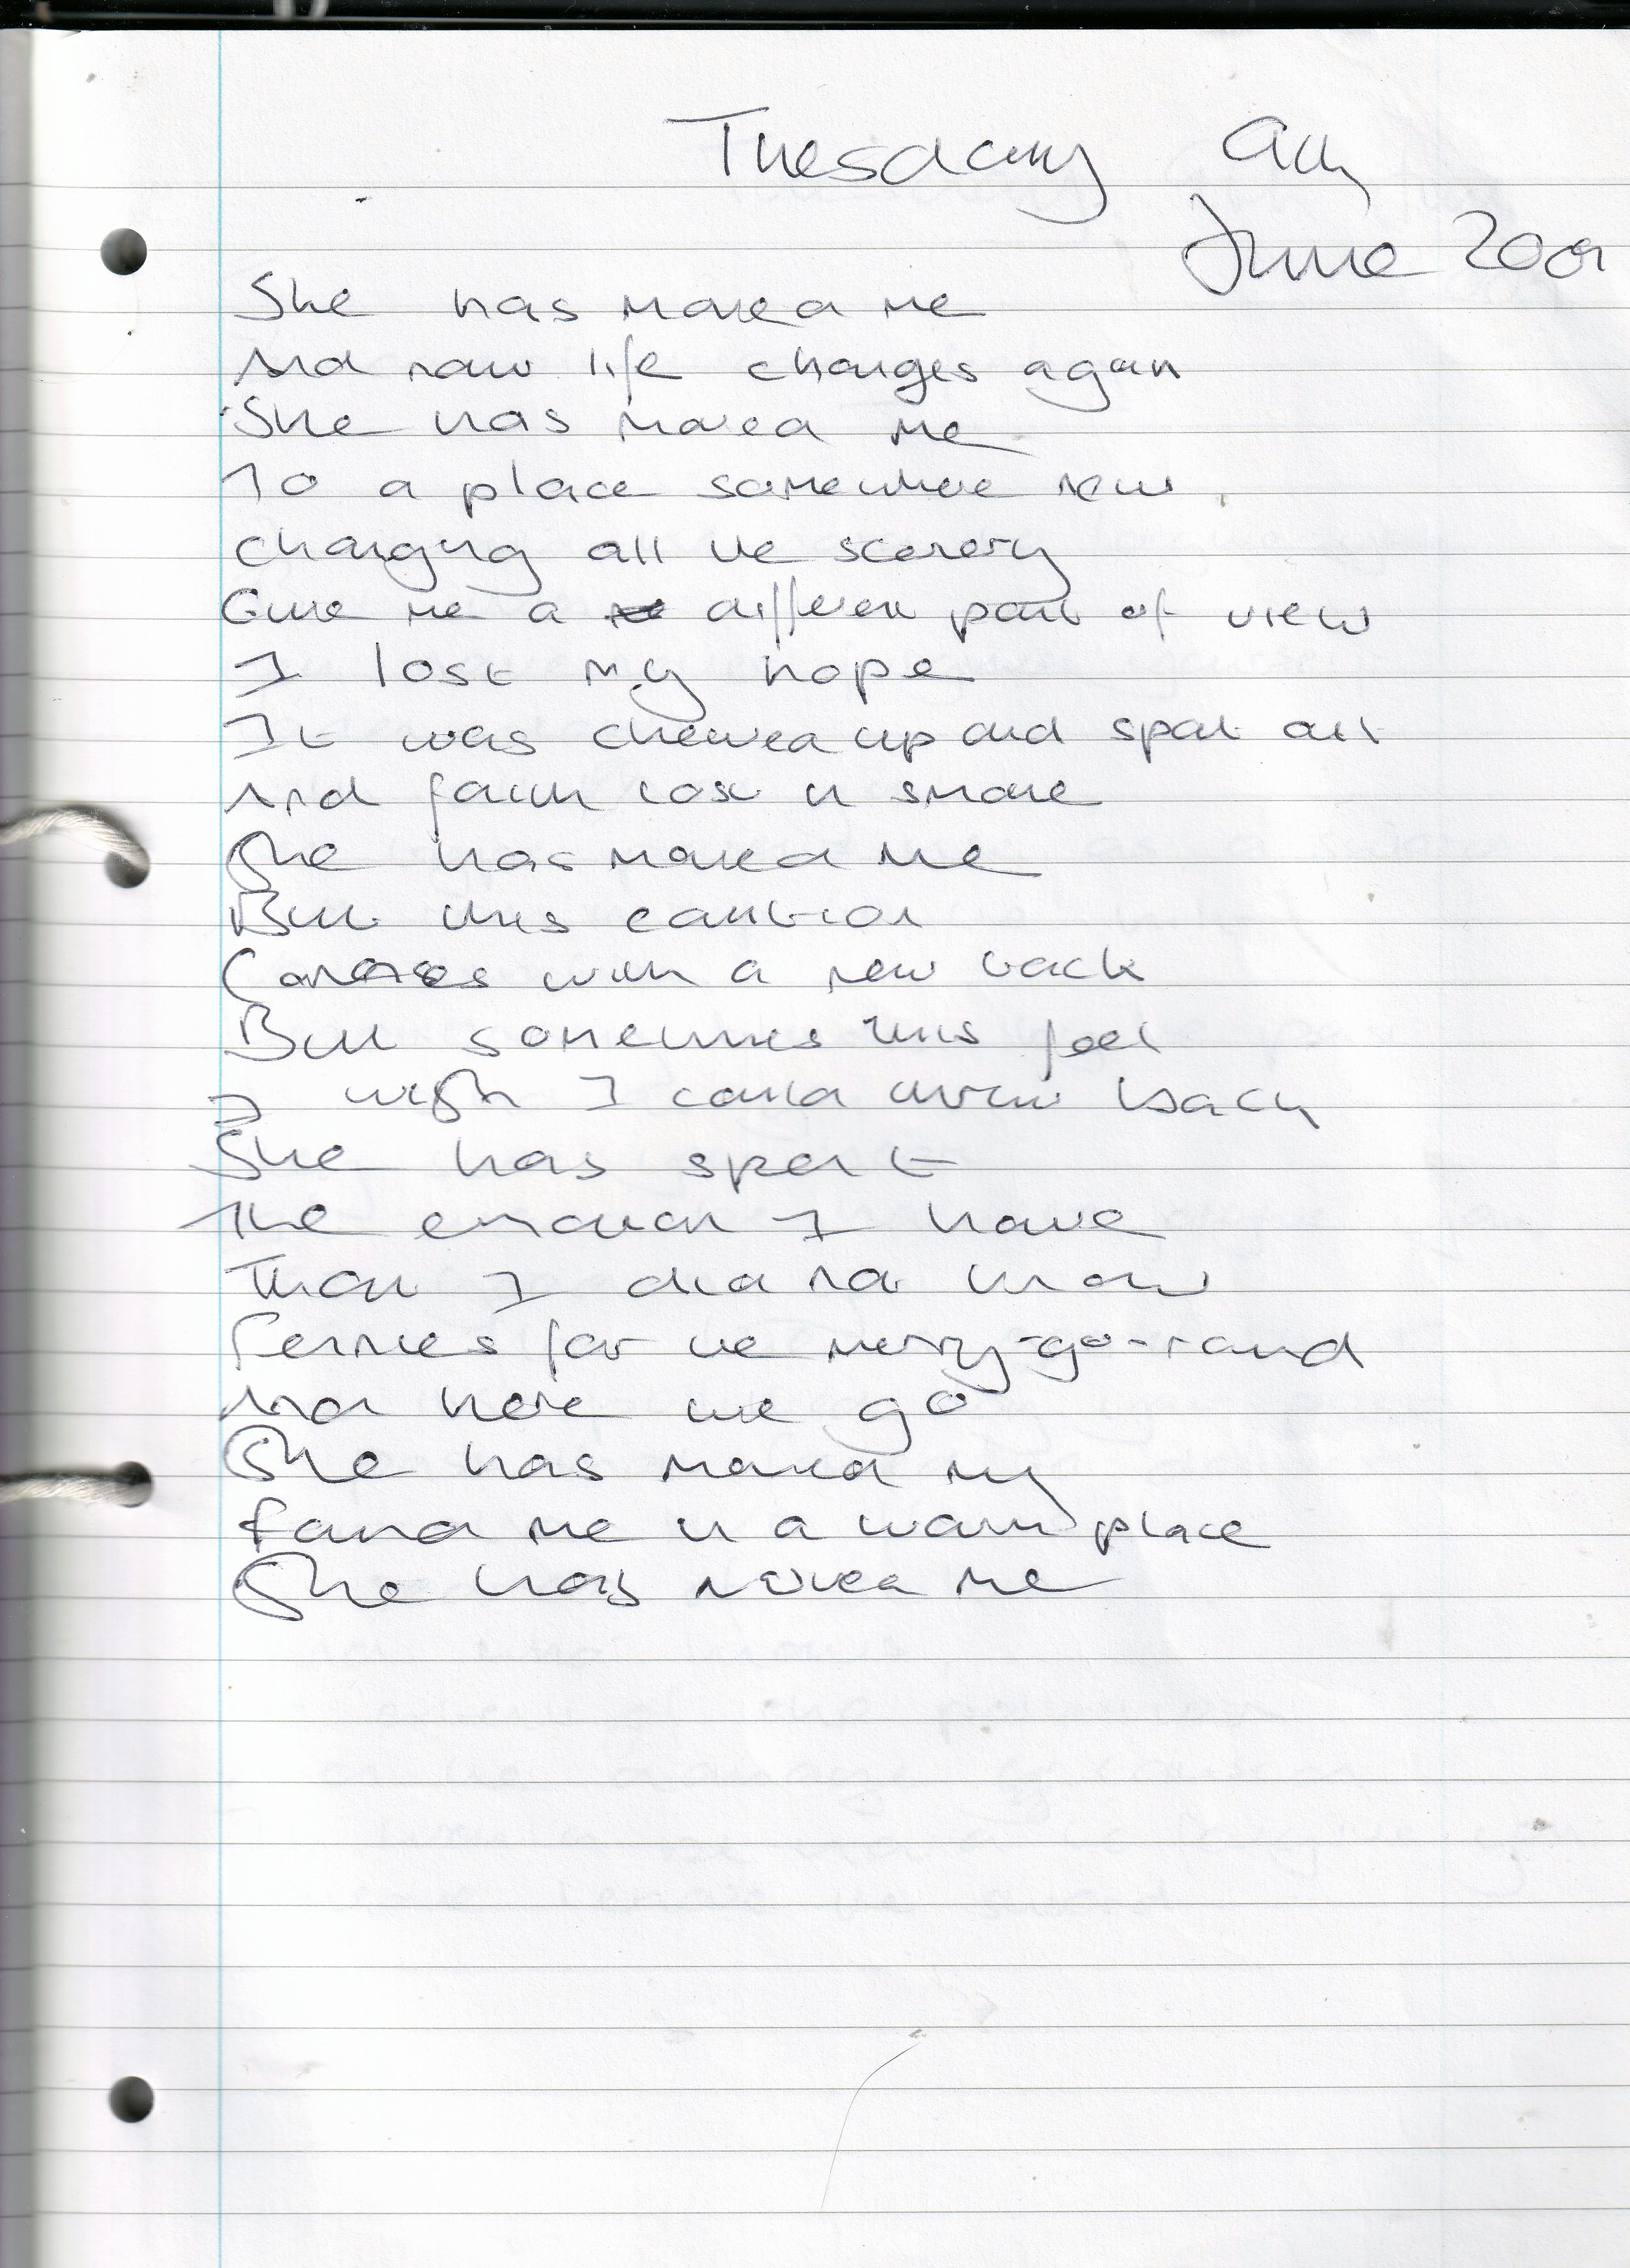 Tuesday 9th
June 2009
She has moved me
And now life changes again
She has moved me
To a place somewhere new
changing all the scenery
Give me a different point of view
I lost my hope
It was chewed up and spat out
And faith lost in smoke
She has moved me
But this caution
Comes with a new
But sometimes this feel
I wish I could throw back
She has spent
The emotion I have
That I did not know
Pennies for the merry-go-round
And here we go
She has moved my
Found me in a warm place
She has moved me